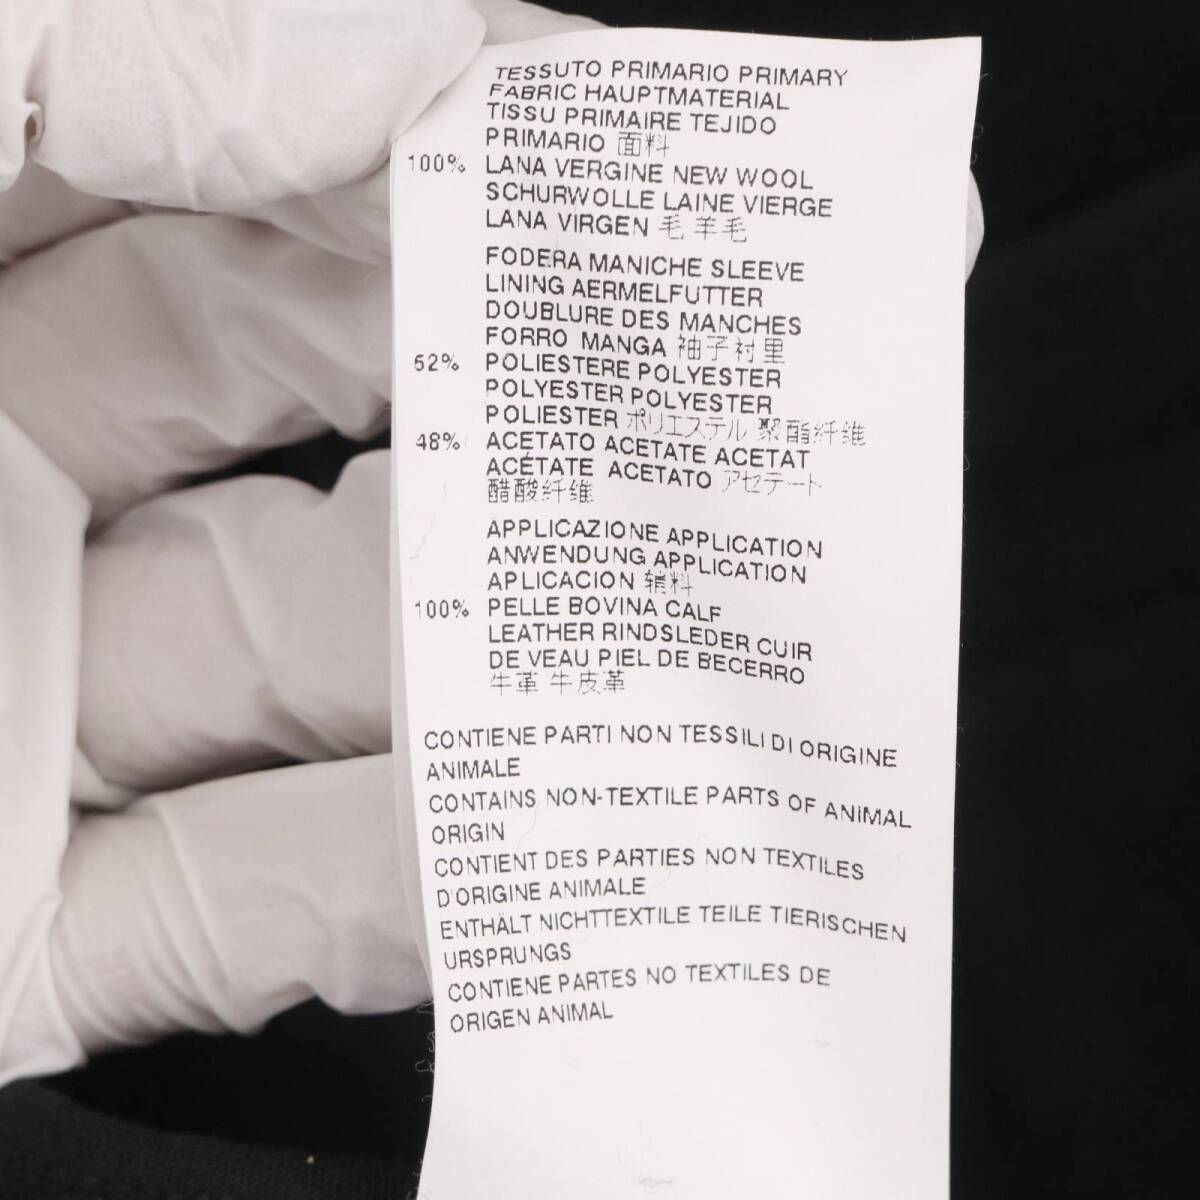 TESSUTO PRIMARIO PRIMARY
FABRIC HAUPTMATERIAL
TISSU PRIMAIRE TEJIDO
PRIMARIO 面料
100% LANA VERGINE NEW WOOL
SCHURWOLLE LAINE VIERGE
LANA VIRGEN 毛 羊毛
FODERA MANICHE SLEEVE
LINING AERMELFUTTER
DOUBLURE DES MANCHES
FORRO MANGA 袖子衬里
52% POLIESTERE POLYESTER
POLYESTER POLYESTER
POLIESTER ポリエステル 聚酯纤维
48% ACETATO ACETATE ACETAT
ACÉTATE ACETATO アセテート
醋酸纤维
APPLICAZIONE APPLICATION
ANWENDUNG APPLICATION
APLICACION 辅料
100% PELLE BOVINA CALF
LEATHER RINDSLEDER CUIR
DE VEAU PIEL DE BECERRO
牛革 牛皮革
CONTIENE PARTI NON TESSILI DI ORIGINE
ANIMALE
CONTAINS NON-TEXTILE PARTS OF ANIMAL
ORIGIN
CONTIENT DES PARTIES NON TEXTILES
D'ORIGINE ANIMALE
ENTHÄLT NICHTTEXTILE TEILE TIERISCHEN
URSPRUNGS
CONTIENE PARTES NO TEXTILES DE
ORIGEN ANIMAL